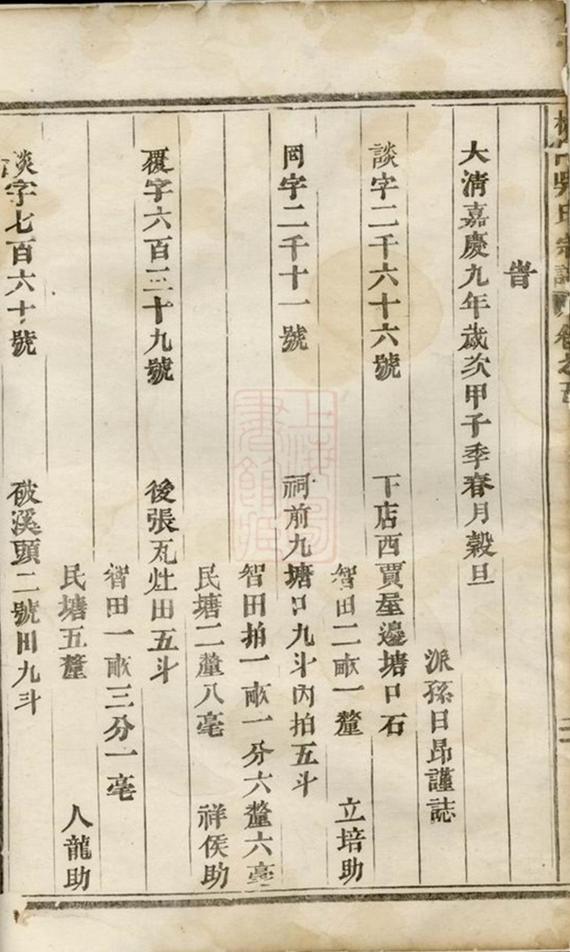 吳氏宗譜 卷之五
旹
大清嘉慶九年歲次甲子季春月穀旦
派孫日昂謹誌
談字二千六十六號 下店西賈屋邊塘口石
智田二畝一釐 立培助
罔字二千十一號 祠前九塘口九斗內拍五斗
智田拍一畝一分六釐六毫
民塘二釐八毫 祥侯助
覆字六百三十九號 後張瓦灶田五斗
智田一畝三分一毫
民塘五釐 人龍助
談字七百六十號 破溪頭二號田九斗
上海圖書館藏